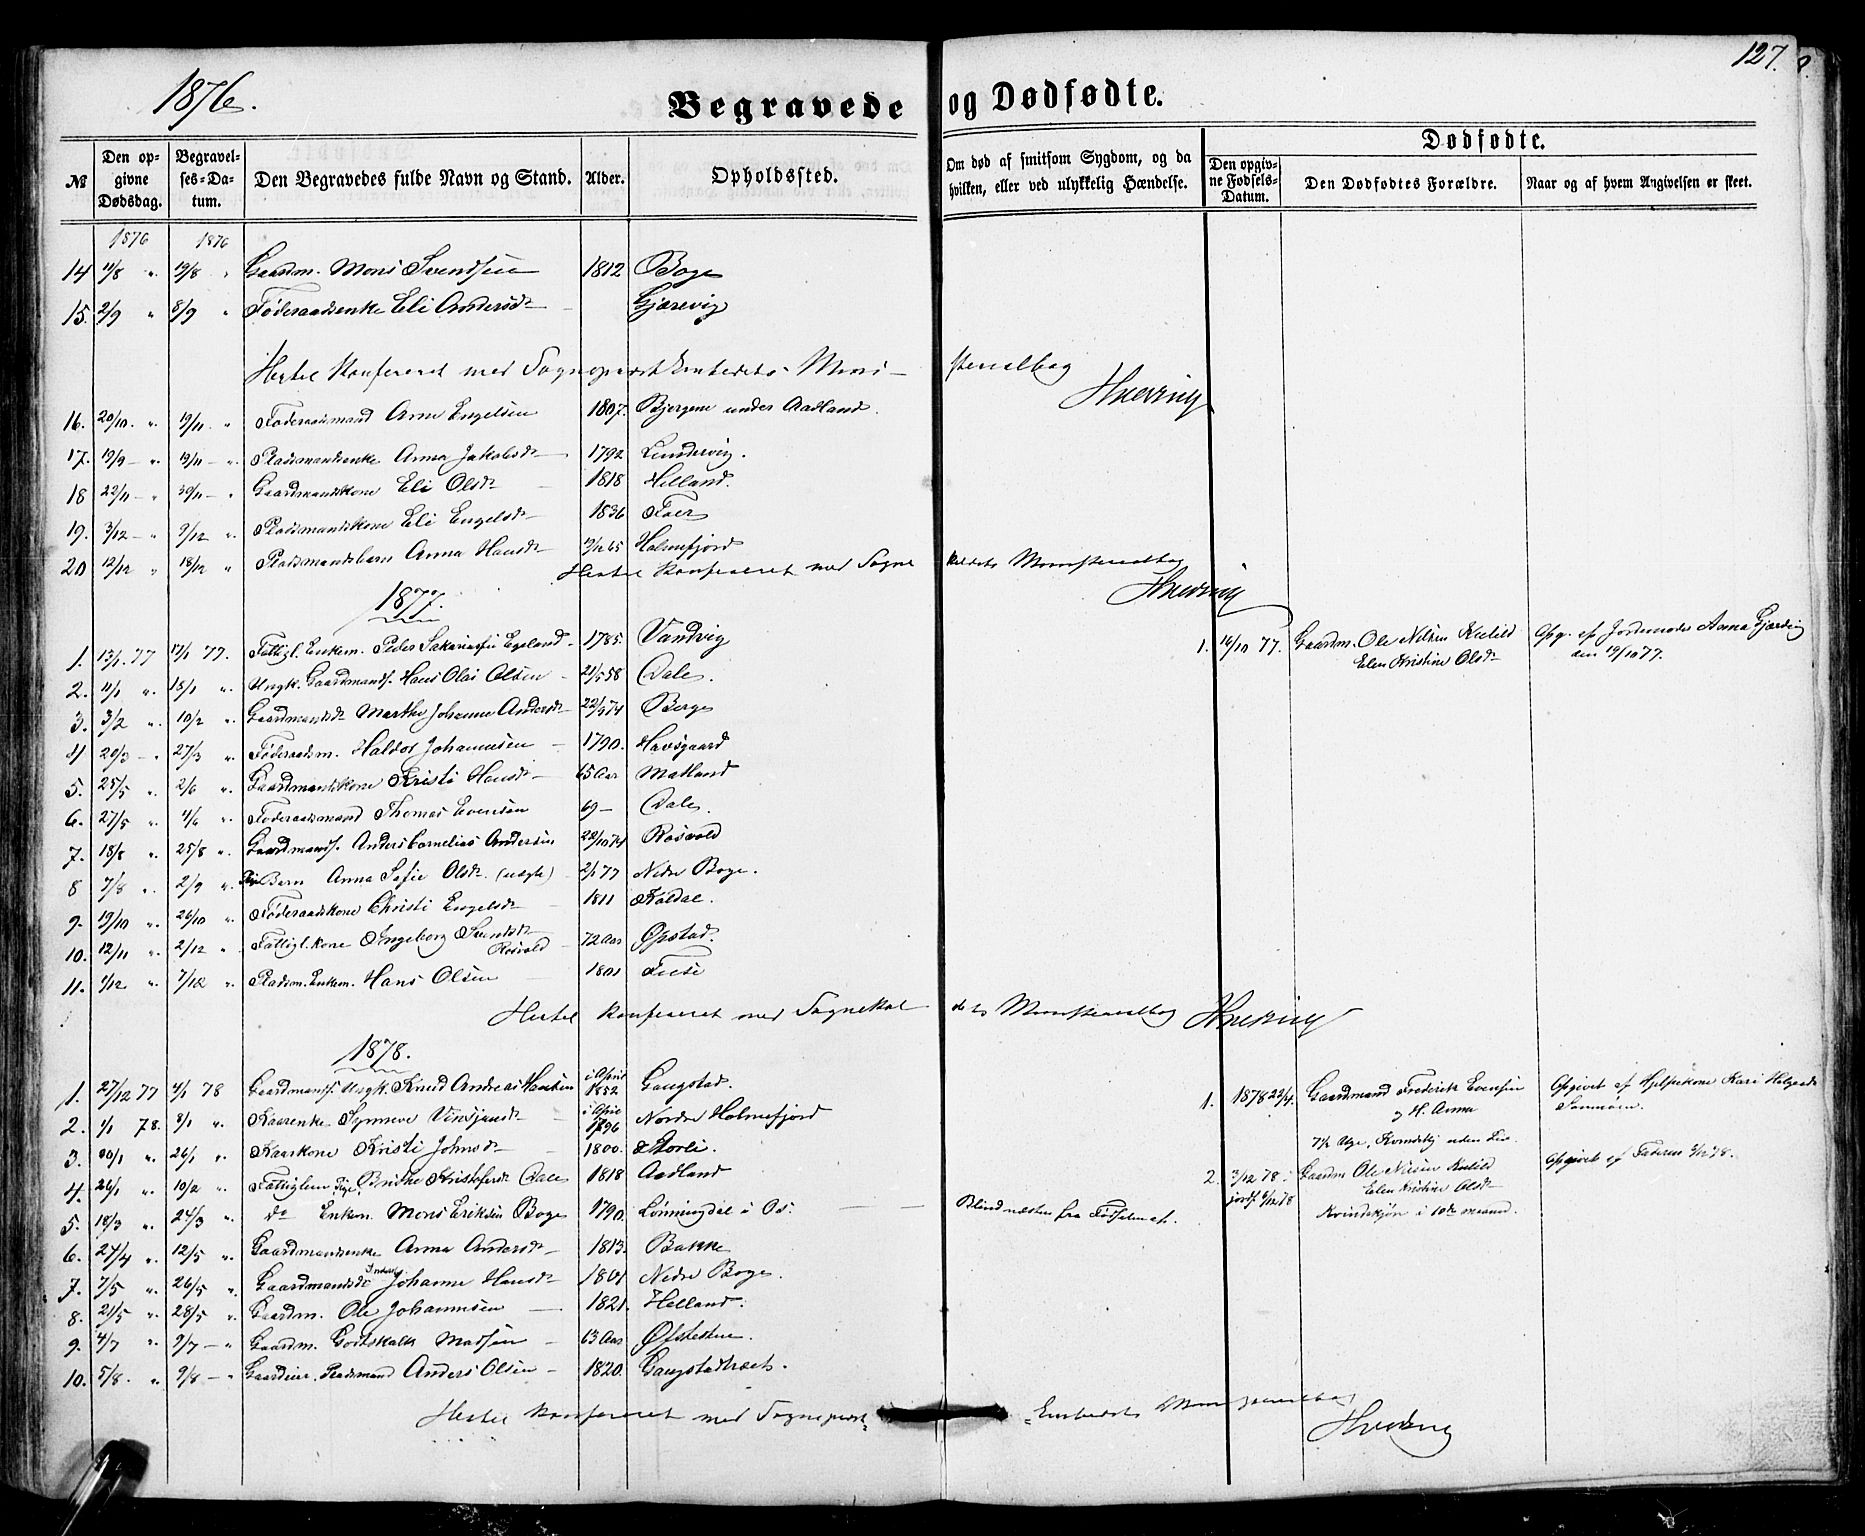 127.
1876.
Begravede og Dødfødte.
Dødfødte.
№ Den opgivne Dødsdag. Begravelses-Datum. Den Begravedes fulde Navn og Stand. Alder. Opholdssted. Om død af smitsom Sygdom, og da hvilken, eller ved ulykkelig Hændelse. Den opgivne Fødsels-Datum. Den Dødfødtes Forældre. Naar og af hvem Angivelsen er skeet.
1876 1876
14 11/8 " 19/8 " Gaardm. Mons Svendsen 1812 Boge
15. 2/9 " 8/9 " Føderaadsenke Eli Andersdtr Gjærevig
Hertil konfereret med Sognepræstembedets Ministerialbog
16. 20/10 " 9/11 " Føderaadsmand Arne Engelsen 1807. Bjergene under Aadland.
17. 19/9 - " 19/11 - " Pladsmandsenke Anna Jakobsdtr 1792 Lundervig.
18 22/11 - " 30/11 - " Gaardmandskone Eli Olsdtr - 1818 Helland.
19. 3/12 - " 9/12 " Pladsmandskone Eli Engelsdtr 1836
20 12/12 " 18/12 " Pladsmandsbarn Anna Hansdtr 65 Holmefjord
Hertil konfereret med Sogne kaldets Ministerialbog
1877.
1. 13/1 77 17/1 77. Fattigl. Enkem. Peder Sakariassen Egeland 1785. Vandvig 1. 16/10 77. Gaardm. Ole Nilsen
Elen Kristine Olsdtr Opg. af Jordemoder Anna Gjærevig
den 19/10 77.
2. 11/1 " 18/1 " Ungk. Gaardmands. Hans Olai Olsen - 21/5 58 Dale.
3. 3/2 " 10/2 " Gaardmandsdtr Marthe Johanne Andersdtr 22/9 74 Berge
4 20/3 - " 27/3 " Føderaadsm. Haldor Johannesen - 1790. Havsgaard
5. 25/5 " 2/6 " Gaardmandskone Kristi Hansdtr 65 Aar Matland
6. 27/5 " 4/6 " Føderaadsmand Thomas Evensen 69 - Dale.
7. 18/8 " 25/8 " Gaardmands. Anders Cornelius Andersen 22/10 74 Røsvold
8 7/8 " 2/9 " Barn Anna Sofie Olsdtr (uægte) - 77 Nedre Boge.
9. 19/10 " 26/10 " Føderaadskone Christi Engelsdtr - 1811 Koldal.
10. 12/11 " 2/12 " Fattigl. kone Ingeborg Svendsdtr
Røsvold - 72 Aar Opstad.
11. 1/12 " 7/12 " Pladsm. Enkem. Hans Olsen 1801
Hertil konfereret med Sognekaldets Ministerialbog
1878.
1. 27/12 77 4/1 78 Gaardmands. Ungk. Knud Andreas Hansen i April
1852 Gaugstad. 1. 1878 23/4. Gaardmand Frederik Evensen
og H. Anna Opgivet af Hjelpekone Kari
2. 1/1 78. 8/1 " Kaarenke Synneve 1796 Nordre Holmefjord
3. 20/1 " 26/1 " Kaarkone Kristi Johnsdtr 1800.
4. 26/1 " 10/2 " Fattiglem Pige Brithe Kristofersdtr Dale 1818 Aadland 2. 3/12 78. Gaardm Ole Nilsen
Elen Kristine Olsdtr Opgivet af Faderen
5. 18/3 " 24/3 " do Enkem. Mons Eriksen Boge 1790. Lønningdal i Os. - - Blind næsten fra Fødselen af. Kvindekjøn i 10de maaned.
6. 27/4 " 12/5 " Gaardmandsenke Anna Andersdtr - 1813. Bakke
7. 7/5 " 26/5 " Gaardmandsdtr Johanne Hansdtr 1801 Nedre Boge.
8. 21/5 " 28/5 " Gaardm. Ole Johannesen - 1821. Helland.
9. 4/7 " 9/7 - " Gaardm. Godtskalk Madsen - 63 Aar
10. 5/8. " 9/8 - " Pladsmand Anders Olsen - 1820. Gaugstadtræet.
Hertil konfereret med Sognepræst-Embedets Ministerialbog